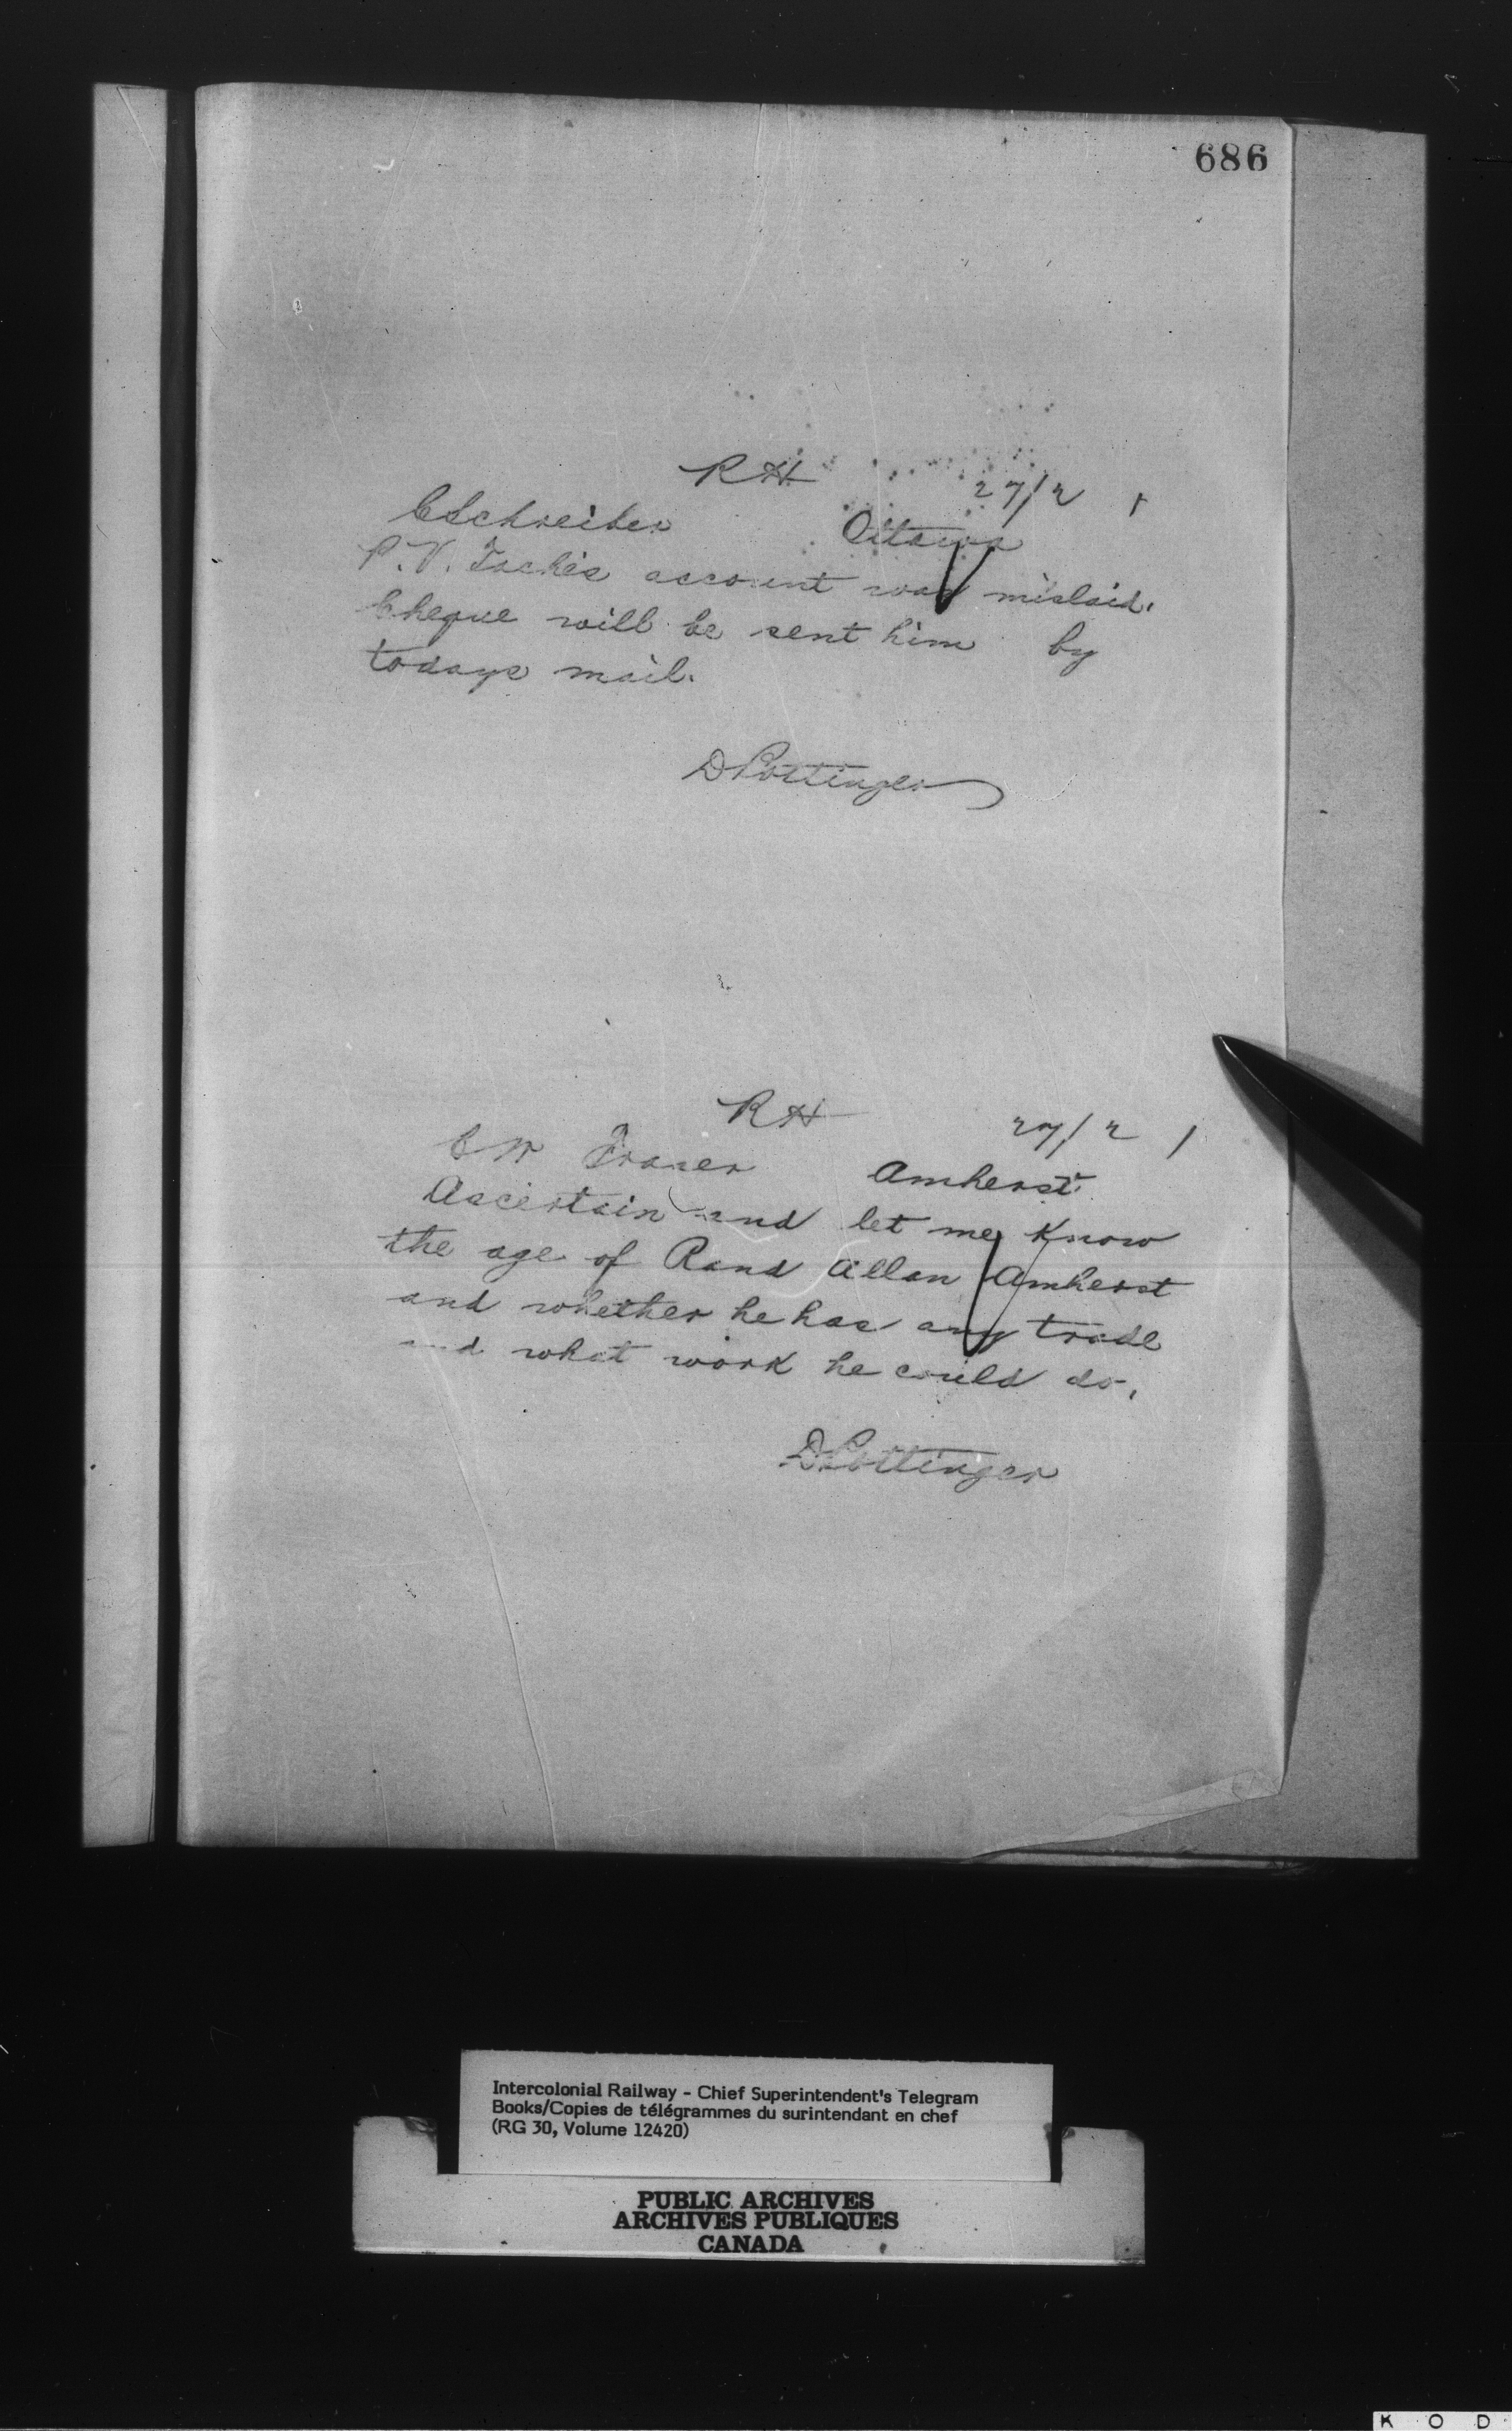 686
RH 27/2
CSchreiber Ottawa
P.V. Taché's account was mislaid.
Cheque will be sent him by
todays mail.
DPottinger
RH 27/2
C W Fraser Amherst.
Ascertain and let me know
the age of Rand Allan Amherst
and whether he has any trade
and what work he could do.
DPottinger
Intercolonial Railway - Chief Superintendent's Telegram
Books/Copies de télégrammes du surintendant en chef
(RG 30, Volume 12420)
PUBLIC ARCHIVES
ARCHIVES PUBLIQUES
CANADA
K O D